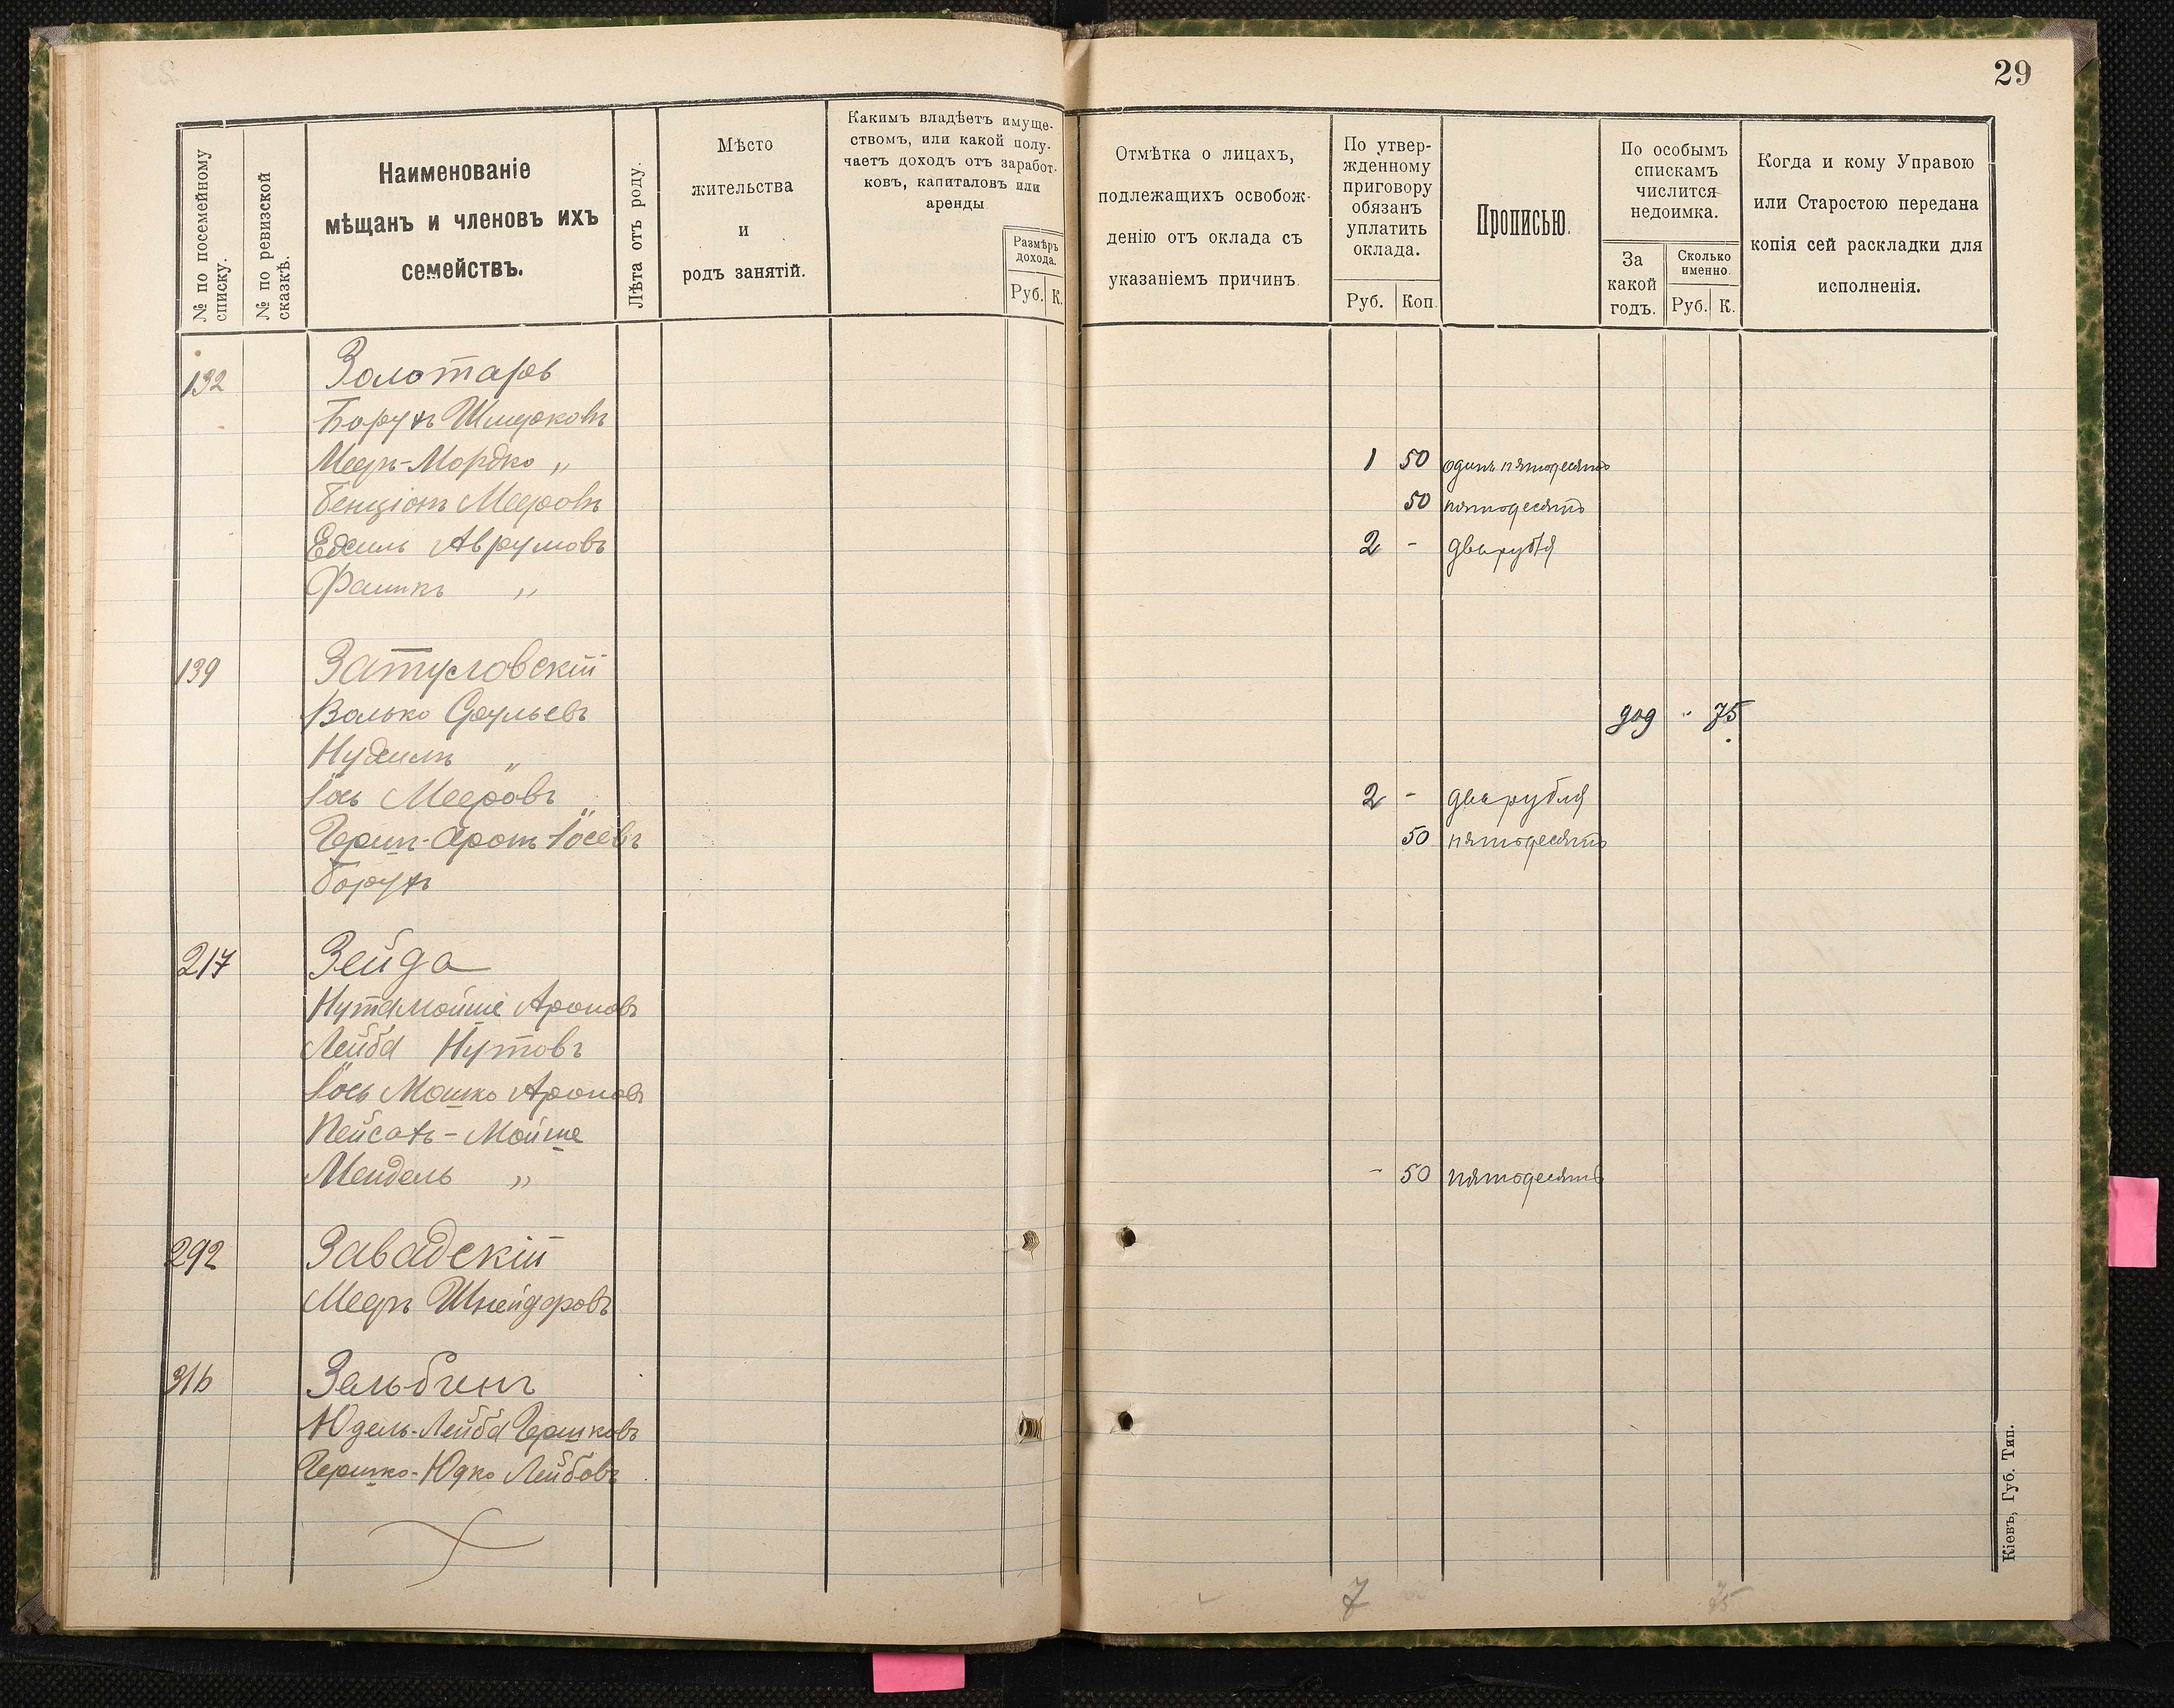 29
№ по посемейному списку.
№ по ревизской сказкѣ.
Наименованіе
мѣщанъ и членовъ ихъ
семействъ.
Лѣта отъ роду.
Мѣсто
жительства
и
родъ занятій.
Какимъ владѣетъ имуще-
ствомъ, или какой полу-
чаетъ доходъ отъ заработ-
ковъ, капиталовъ или
аренды
Размѣръ
дохода.
Руб. К.
Отмѣтка о лицахъ,
подлежащихъ освобож-
денію отъ оклада съ
указаніемъ причинъ.
По утвер-
жденному
приговору
обязанъ
уплатить
оклада.
Руб. Коп.
Прописью.
По особымъ
спискамъ
числится
недоимка.
За
какой
годъ.
Сколько
именно.
Руб. К.
Когда и кому Управою
или Старостою передана
копія сей раскладки для
исполненія.
132 Золотарь
Борухъ Шмерковъ
Мееръ-Мордко „ 1 50 одинъ пятьдесятъ
Бенціонъ Мееровъ 50 пятьдесятъ
Аврумовъ 2 - два рубля
„
139 Затуловскій
Волько Срульевъ 909 " 75
Нухимъ „
Іось Мееровъ 2 - два рубля
Герш-Аронъ Іосевъ 50 пятьдесятъ
Борухъ
217 Зейда
Нута Мойше Ароновъ
Лейба Нутовъ
Іось Мошко Ароновъ
Пейсахъ-Мойше
Мендель „ - 50 пятьдесятъ
292 Завадскій
Мееръ Шнейеровъ
316
Юдель-Лейба Гершковъ
Гершко-Юдко Лейбовъ
7 75
Кіевъ, Губ. Тип.